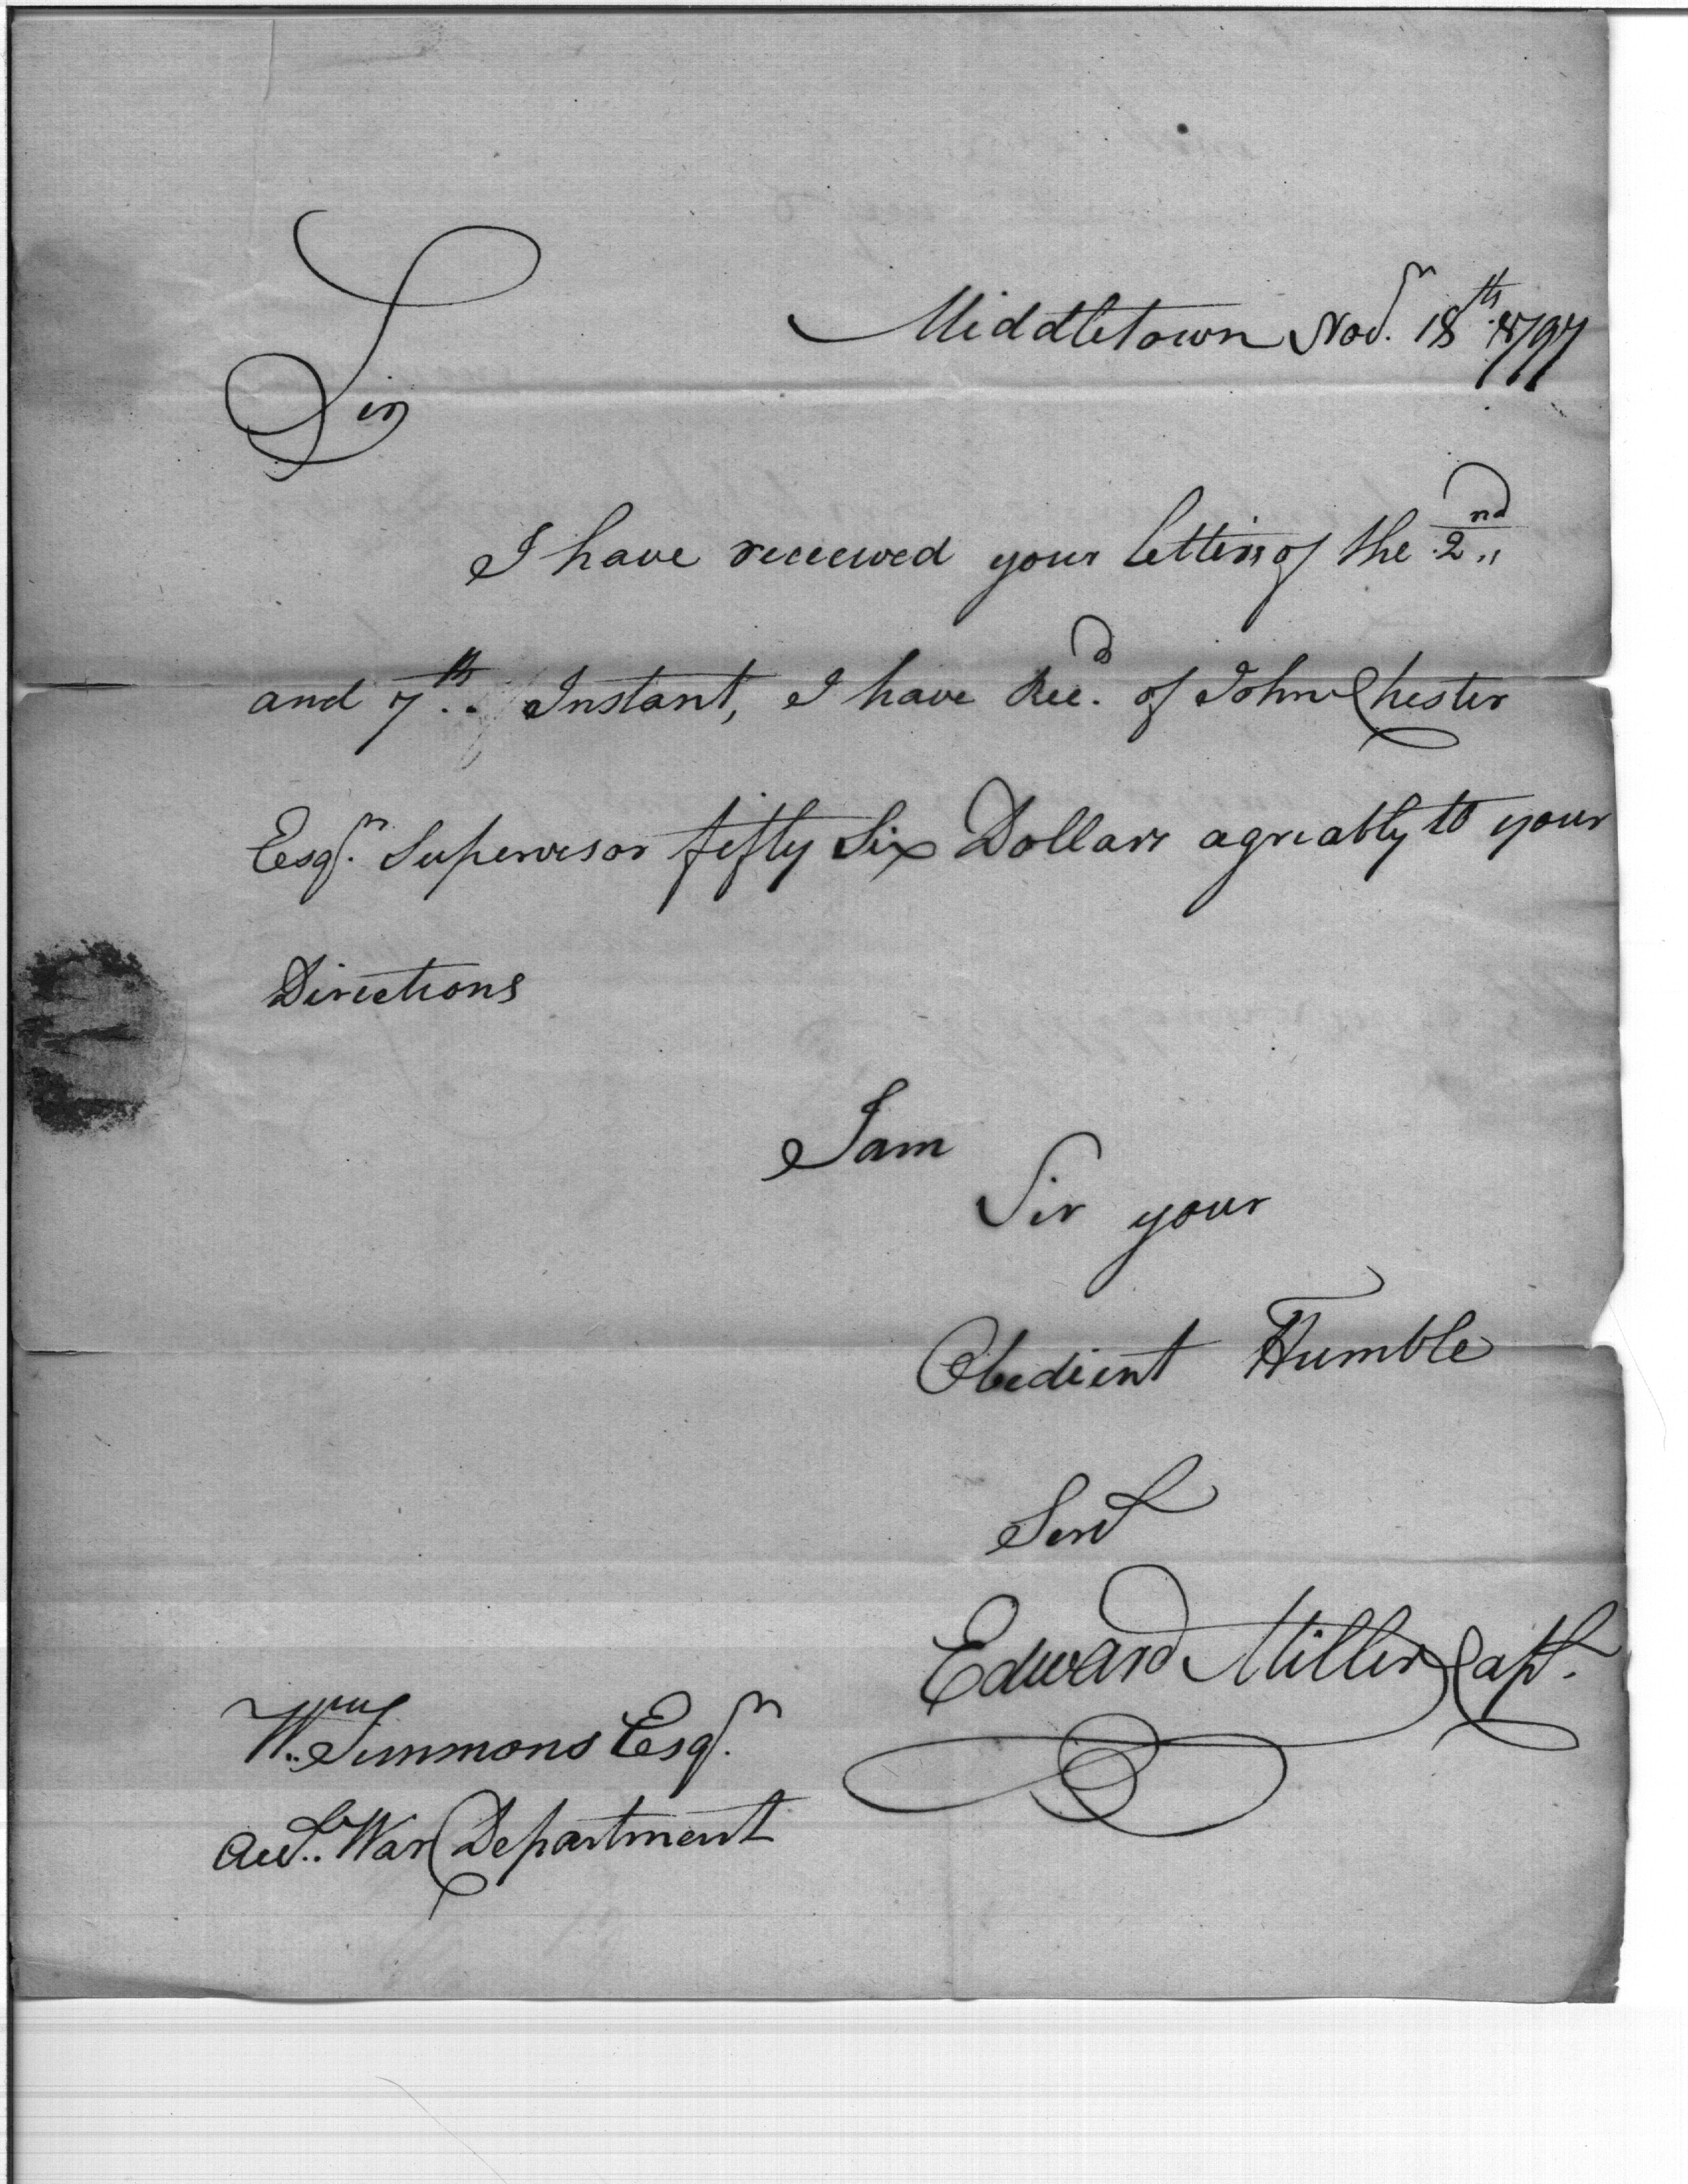 Middletown Nov.r 18th 1797
Sir
I have received your letters of the 2nd
and 7th Instant, I have Rec.d of John Chester
Esq.r Supervisor fifty Six Dollars agreably to your
Directions
I am
Sir your
Obedient Humble
Servt
Edward Miller Capt.
Wm Simmons Esq.r
Acct. War Department